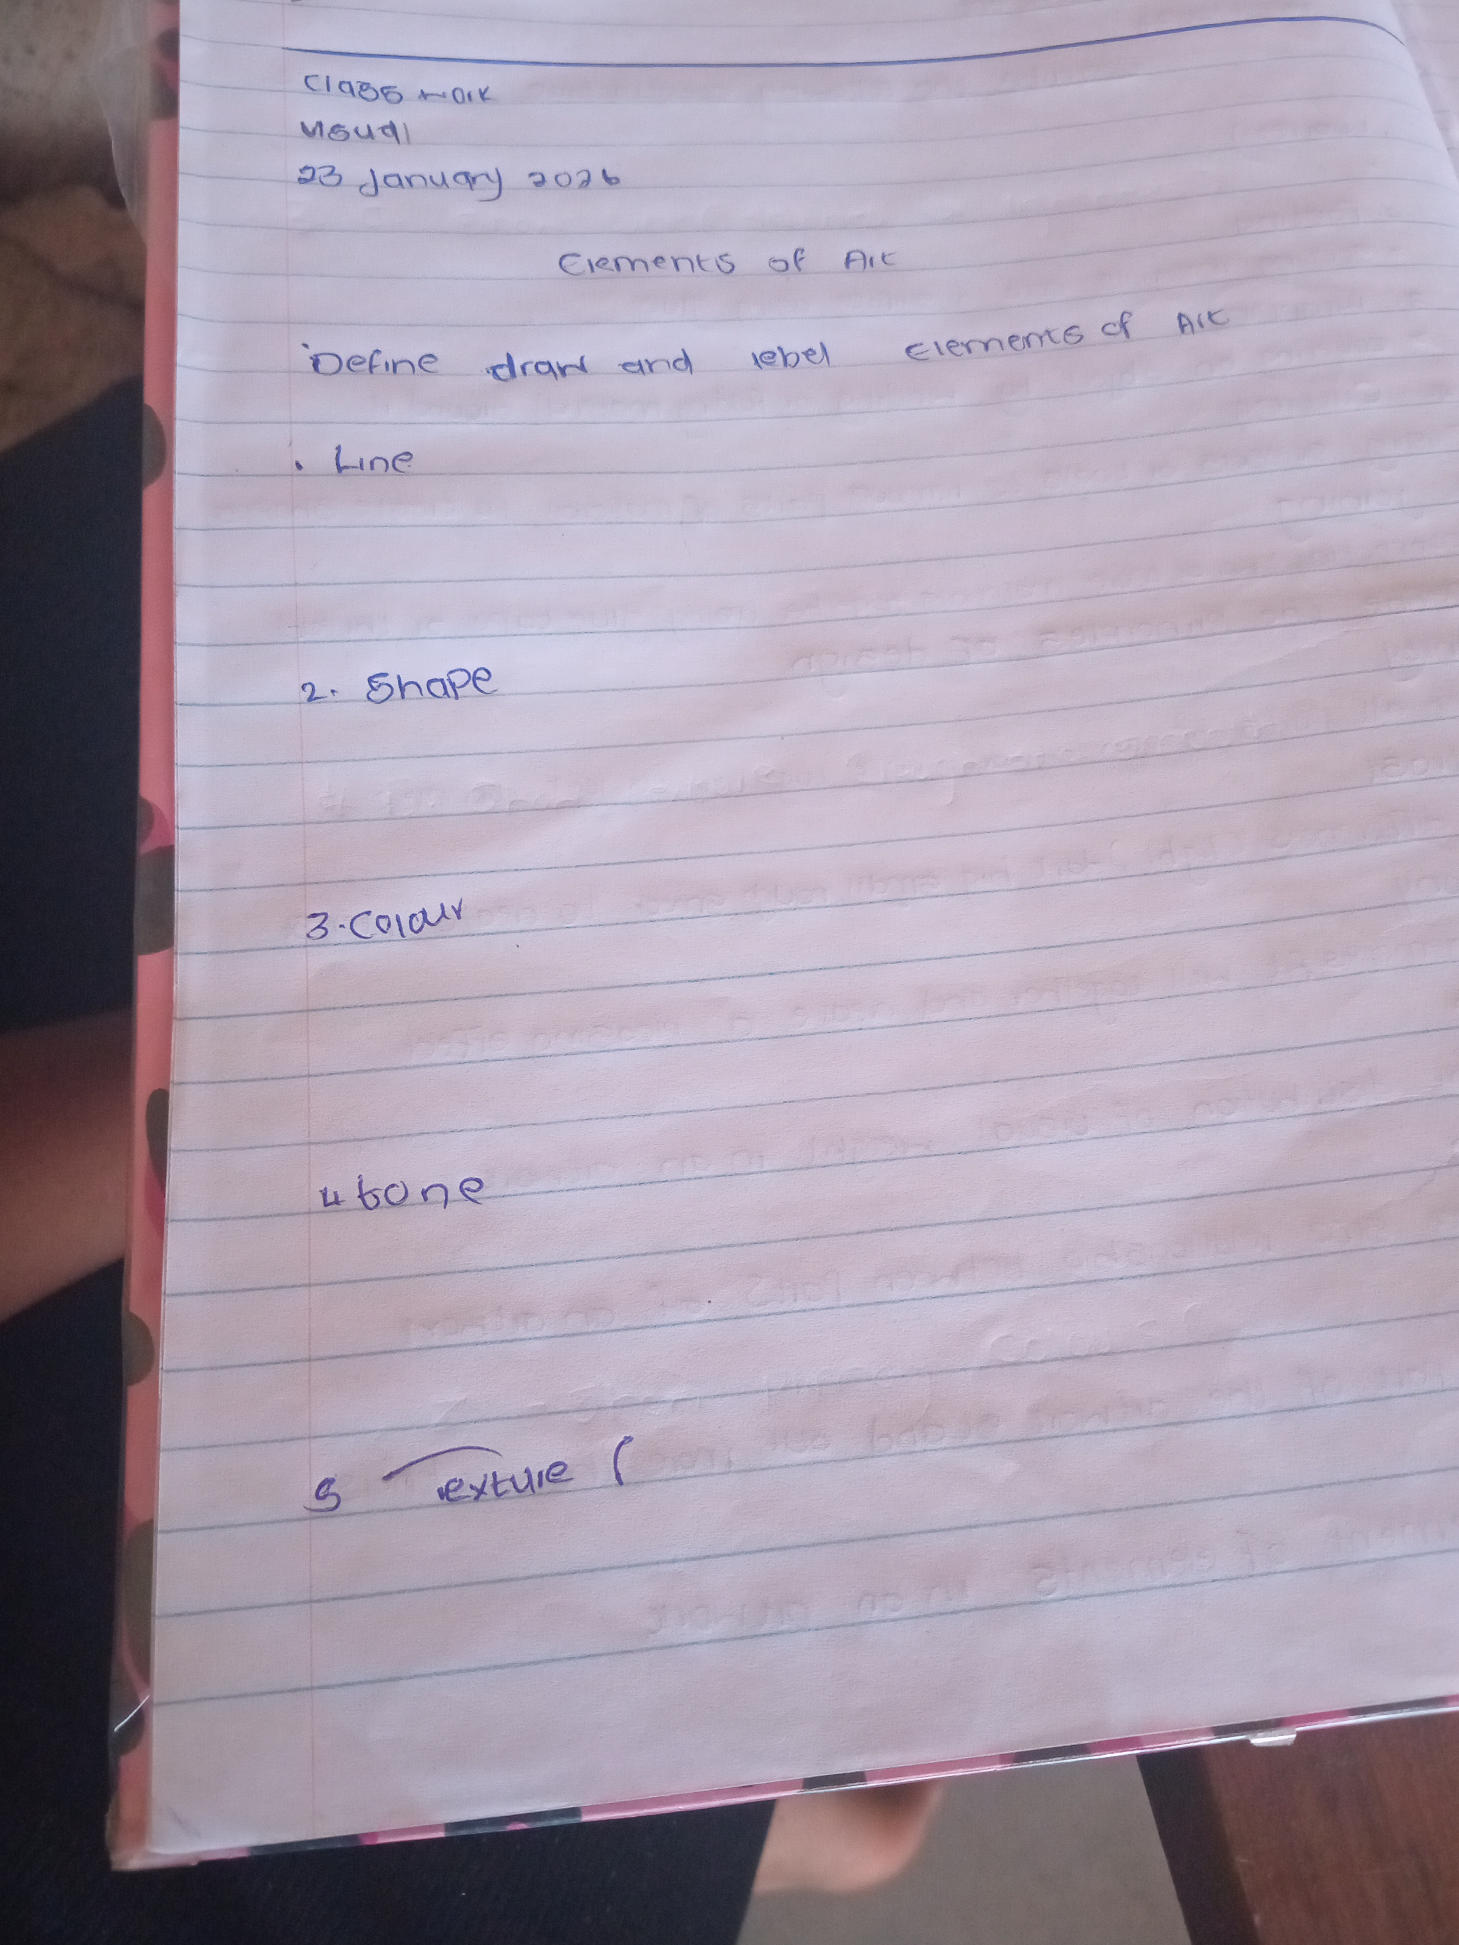 Class work
Visual
23 January 2026
Elements of Art
Define draw and lebel Elements of Art
. Line
2. Shape
3. Colour
4 tone
5 Texture (